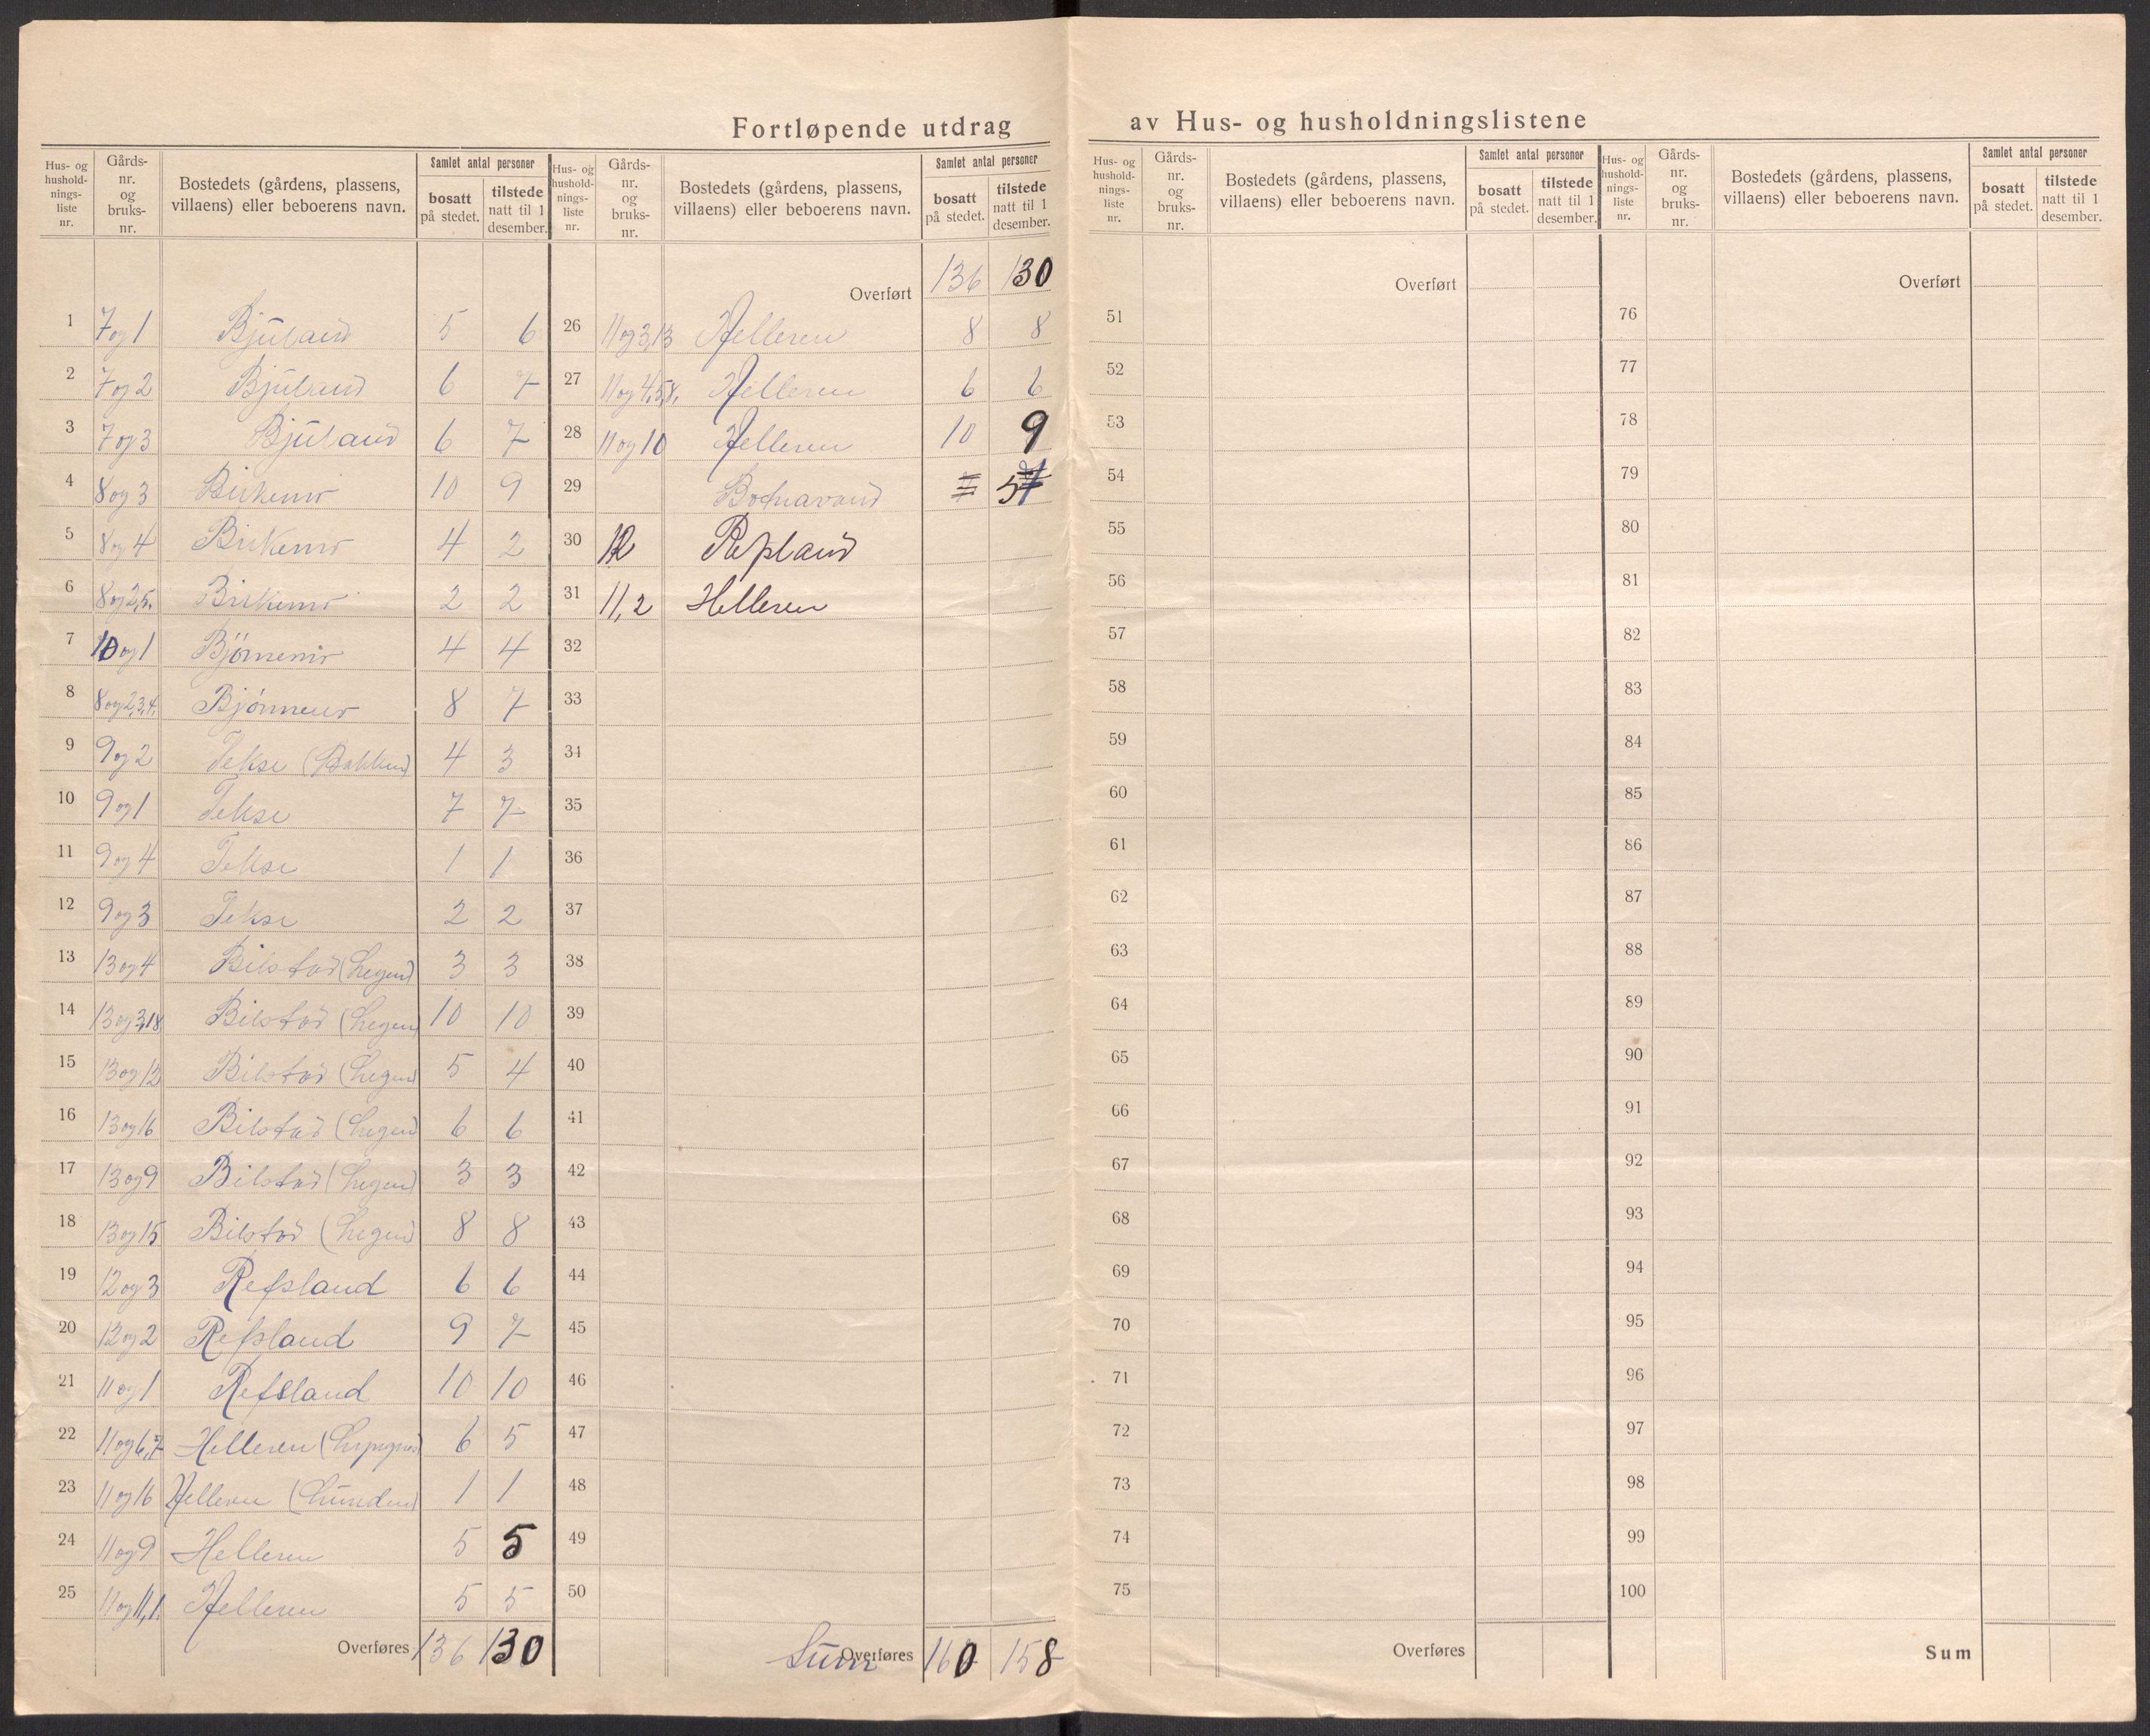 Fortløpende utdrag av Hus- og husholdningslistene
Hus- og hushold-nings-liste nr. Gårds-nr. og bruks-nr. Bostedets (gårdens, plassens, villaens) eller beboerens navn. Samlet antal personer bosatt på stedet. tilstede natt til 1 desember.
Hus- og hushold-nings-liste nr. Gårds-nr. og bruks-nr. Bostedets (gårdens, plassens, villaens) eller beboerens navn. Samlet antal personer bosatt på stedet. tilstede natt til 1 desember.
Hus- og hushold-nings-liste nr. Gårds-nr. og bruks-nr. Bostedets (gårdens, plassens, villaens) eller beboerens navn. Samlet antal personer bosatt på stedet. tilstede natt til 1 desember.
Hus- og hushold-nings-liste nr. Gårds-nr. og bruks-nr. Bostedets (gårdens, plassens, villaens) eller beboerens navn. Samlet antal personer bosatt på stedet. tilstede natt til 1 desember.
1 7 og 1 Bjuland 5 6
2 7 og 2 Bjuland 6 7
3 7 og 3 Bjuland 6 7
4 8 og 3 Birkemo 10 9
5 8 og 4 Birkemo 4 2
6 8 og 2,5. Birkemo 2 2
7 10 og 1 Bjørnemo 4 4
8 8 og 2,3,4. 8 7
9 9 og 2 Tekse (Bakken) 4 3
10 9 og 1 Tekse 7 7
11 9 og 4 Tekse 1 1
12 9 og 3 Tekse 2 2
13 13 og 4 Bilstad 3 3
14 13 og 3,18 Bilstad 10 10
15 13 og 12 Bilstad 5 4
16 13 og 16 Bilstad 6 6
17 13 og 9 Bilstad 3 3
18 13 og 15 Bilstad 8 8
19 12 og 3 Refsland 6 6
20 12 og 2 Refsland 9 7
21 11 og 1 Refsland 10 10
22 11 og 6,7 Helleren 6 5
23 11 og 16 Helleren (Lunden) 1 1
24 11 og 9 Helleren 5 5
25 11 og 11,1. Helleren 5 5
Overføres 136 130
Overført 136 130
26 11 og 3,13 Helleren 8 8
27 11 og 4,5,8. Helleren 6 6
28 11 og 10 Helleren 10 9
29 Botnavand 5
30 12 Refsland
31 11,2 Helleren
32
33
34
35
36
37
38
39
40
41
42
43
44
45
46
47
48
49
50
Sum Overføres 160 158
Overført
51
52
53
54
55
56
57
58
59
60
61
62
63
64
65
66
67
68
69
70
71
72
73
74
75
Overføres
Overført
76
77
78
79
80
81
82
83
84
85
86
87
88
89
90
91
92
93
94
95
96
97
98
99
100
Sum